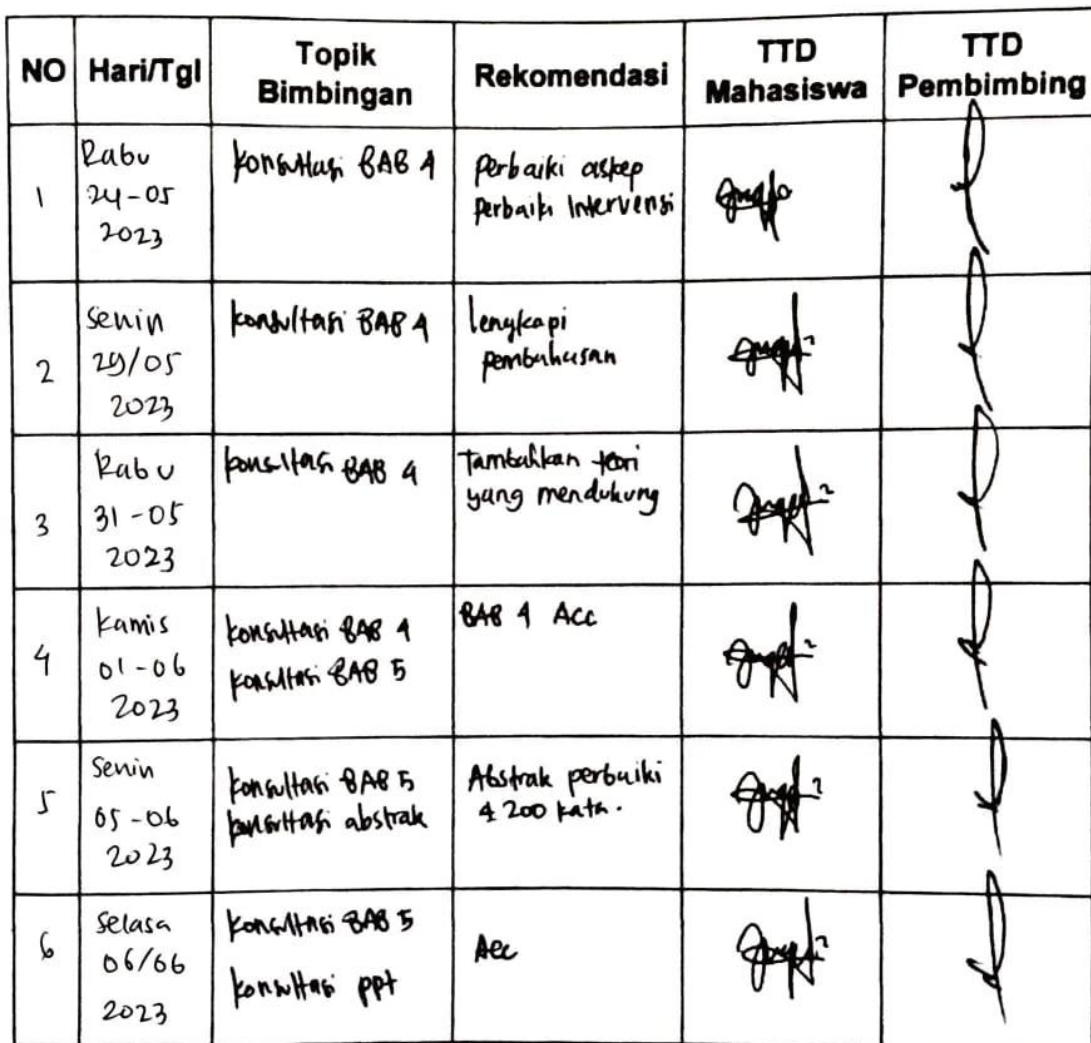 NO Hari/Tgl Topik Bimbingan Rekomendasi TTD Mahasiswa TTD Pembimbing
1
Rabu
24-05
2023
konsultasi BAB 4
perbaiki askep
perbaiki Intervensi
2
Senin
29/05
2023
konsultasi BAB 4
lengkapi
pembahasan
3
Rabu
31-05
2023
konsultasi BAB 4
Tambahkan teori
yang mendukung
4
Kamis
01-06
2023
konsultasi BAB 4
konsultasi BAB 5
BAB 4 Acc
5
Senin
05-06
2023
konsultasi BAB 5
konsultasi abstrak
Abstrak perbaiki
200 kata.
6
Selasa
06/06
2023
konsultasi BAB 5
konsultasi ppt
Acc